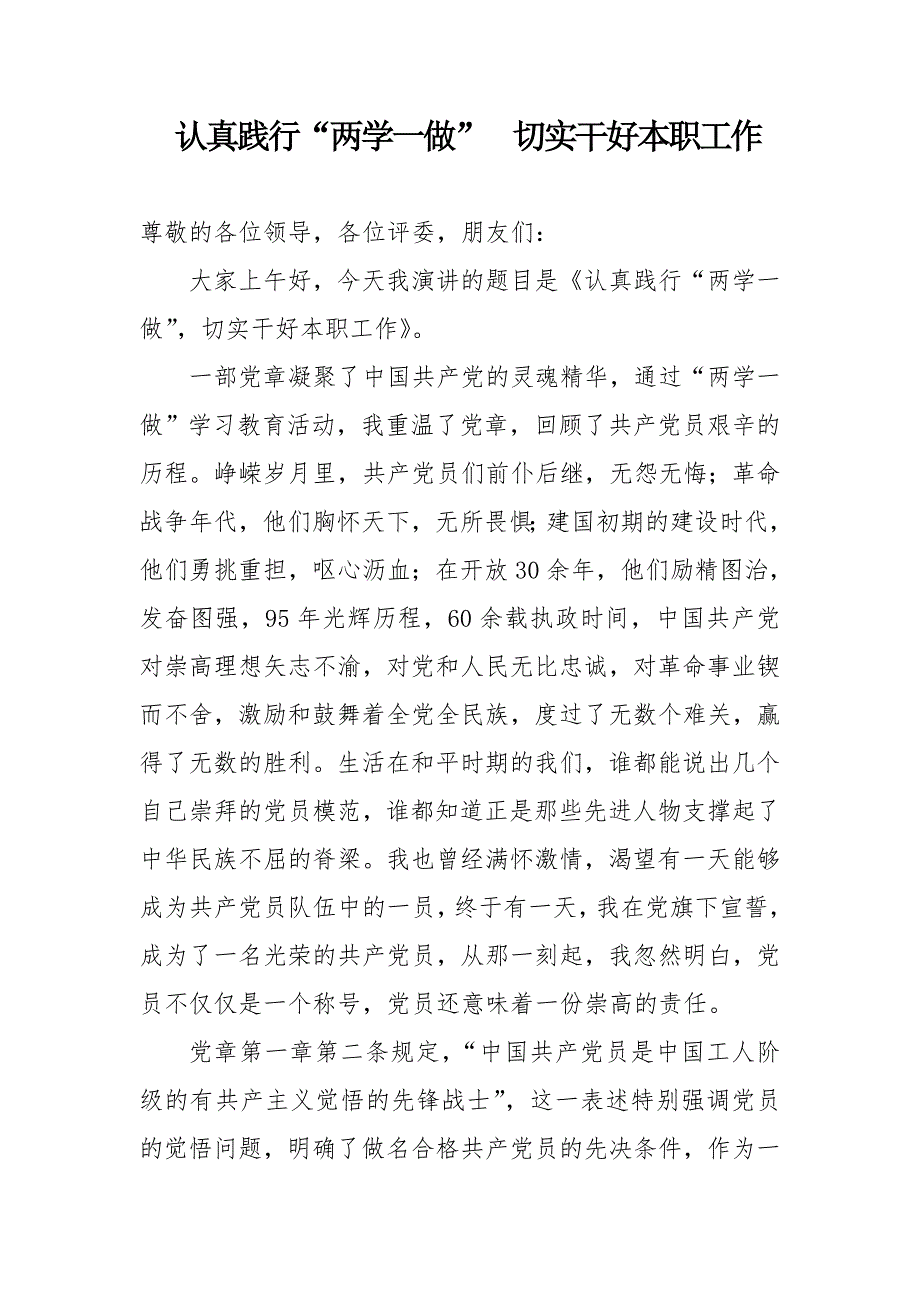 认真践行“两学一做”  切实干好本职工作
尊敬的各位领导，各位评委，朋友们：
大家上午好，今天我演讲的题目是《认真践行“两学一
做”，切实干好本职工作》。
一部党章凝聚了中国共产党的灵魂精华，通过“两学一
做”学习教育活动，我重温了党章，回顾了共产党员艰辛的
历程。峥嵘岁月里，共产党员们前仆后继，无怨无悔；革命
战争年代，他们胸怀天下，无所畏惧；建国初期的建设时代，
他们勇挑重担，呕心沥血；在开放 30 余年，他们励精图治，
发奋图强，95 年光辉历程，60 余载执政时间，中国共产党
对崇高理想矢志不渝，对党和人民无比忠诚，对革命事业锲
而不舍，激励和鼓舞着全党全民族，度过了无数个难关，赢
得了无数的胜利。生活在和平时期的我们，谁都能说出几个
自己崇拜的党员模范，谁都知道正是那些先进人物支撑起了
中华民族不屈的脊梁。我也曾经满怀激情，渴望有一天能够
成为共产党员队伍中的一员，终于有一天，我在党旗下宣誓，
成为了一名光荣的共产党员，从那一刻起，我忽然明白，党
员不仅仅是一个称号，党员还意味着一份崇高的责任。
党章第一章第二条规定，“中国共产党员是中国工人阶
级的有共产主义觉悟的先锋战士”，这一表述特别强调党员
的觉悟问题，明确了做名合格共产党员的先决条件，作为一